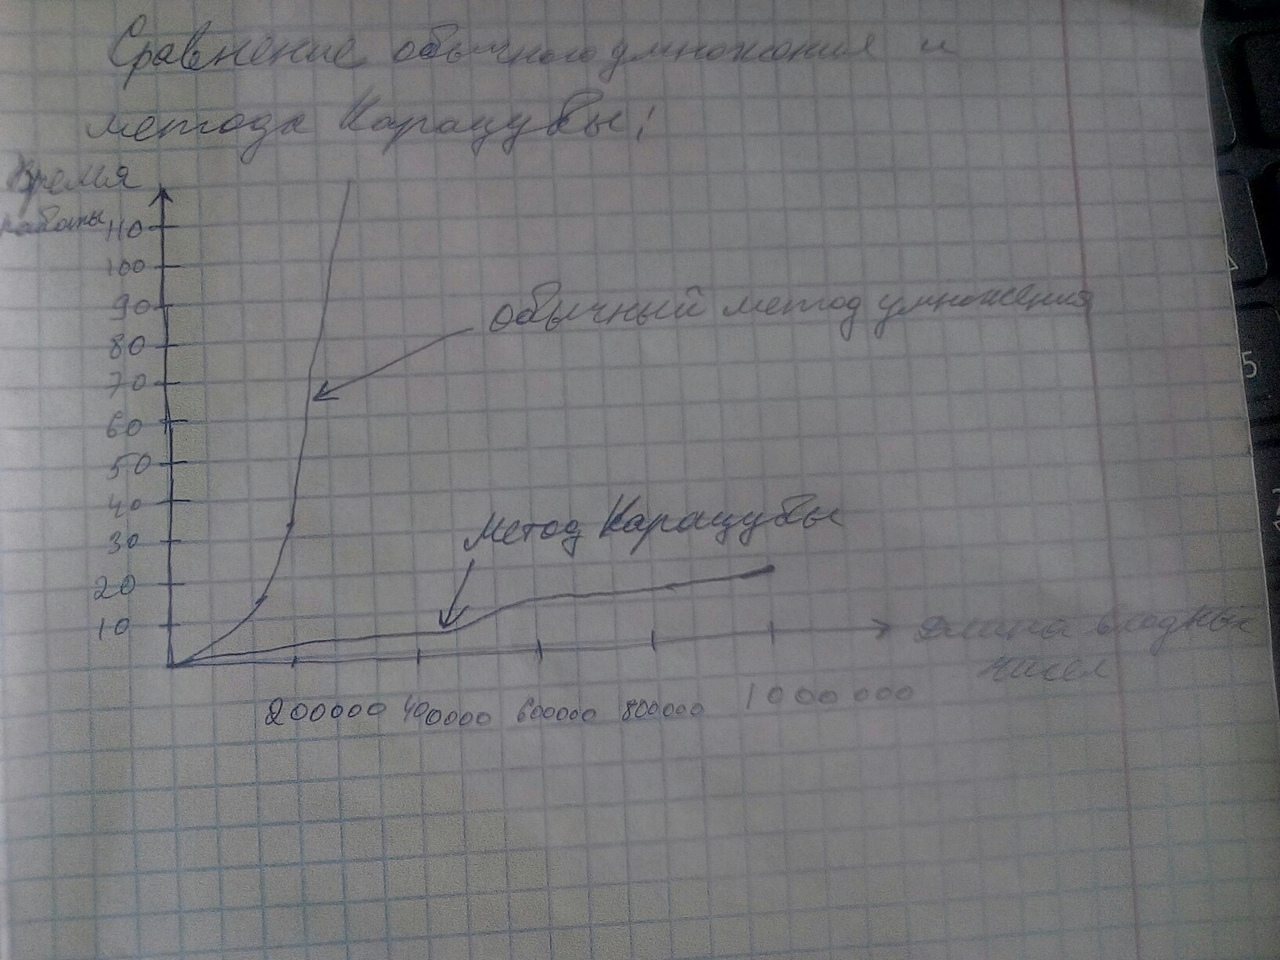 Сравнение обычного умножения и
метода Карацубы:
Время
работы
110
100
90
80
70
60
50
40
30
20
10
обычный метод умножения
Метод Карацубы
Длина входных
чисел
200000 400000 600000 800000 1000000
5